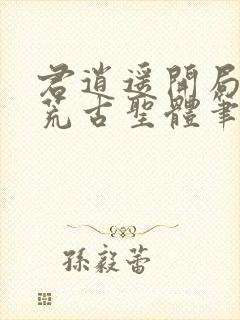 君逍遥開局
荒古聖體筆
孫毅蕾